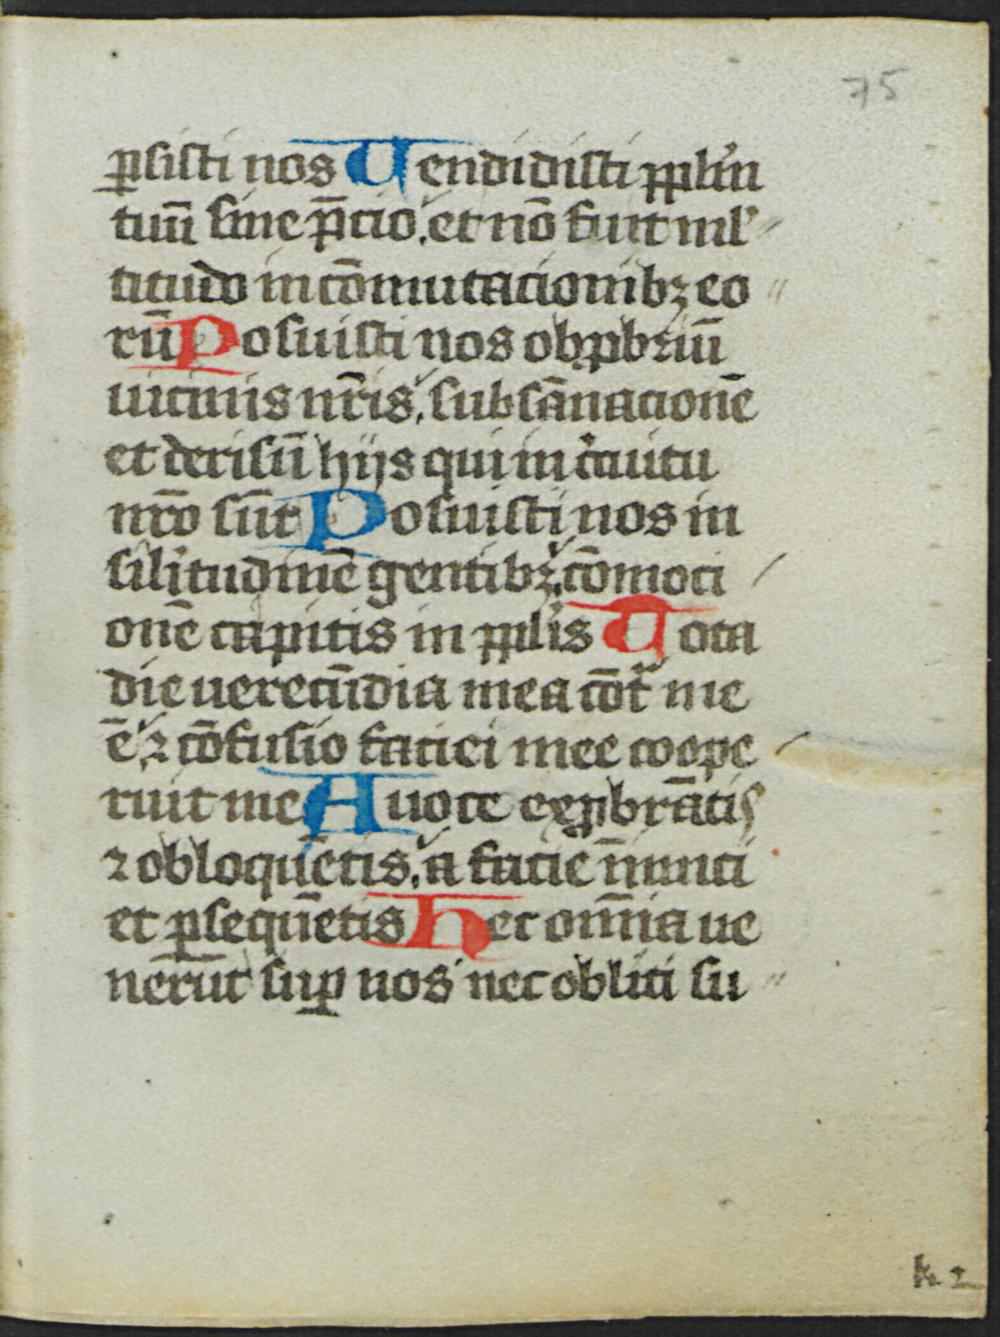 75
ꝑsisti nos Uendidisti ppl̄m
tuū sine p̄cio, et nō fuit ml'
titudo in cōmutacionibꝫ eo
rū Posuisti nos obꝓbriū
uicinis nr̄is, subsānacionē
et derisū hijs qui in circuitu
nr̄o sūt Posuisti nos in
sil̄itudinē gentibꝫ, cōmoci
onē capitis in ppl̄is Tota
die uerecūdia mea cōtra me
ē, ⁊ cōfusio faciei mee coope
ruit me A uoce exꝓbrātis
⁊ obloquētis, a facie inimici
et ꝑsequētis Hec omīa ue
nerūt suꝑ nos nec obliti su
k 2